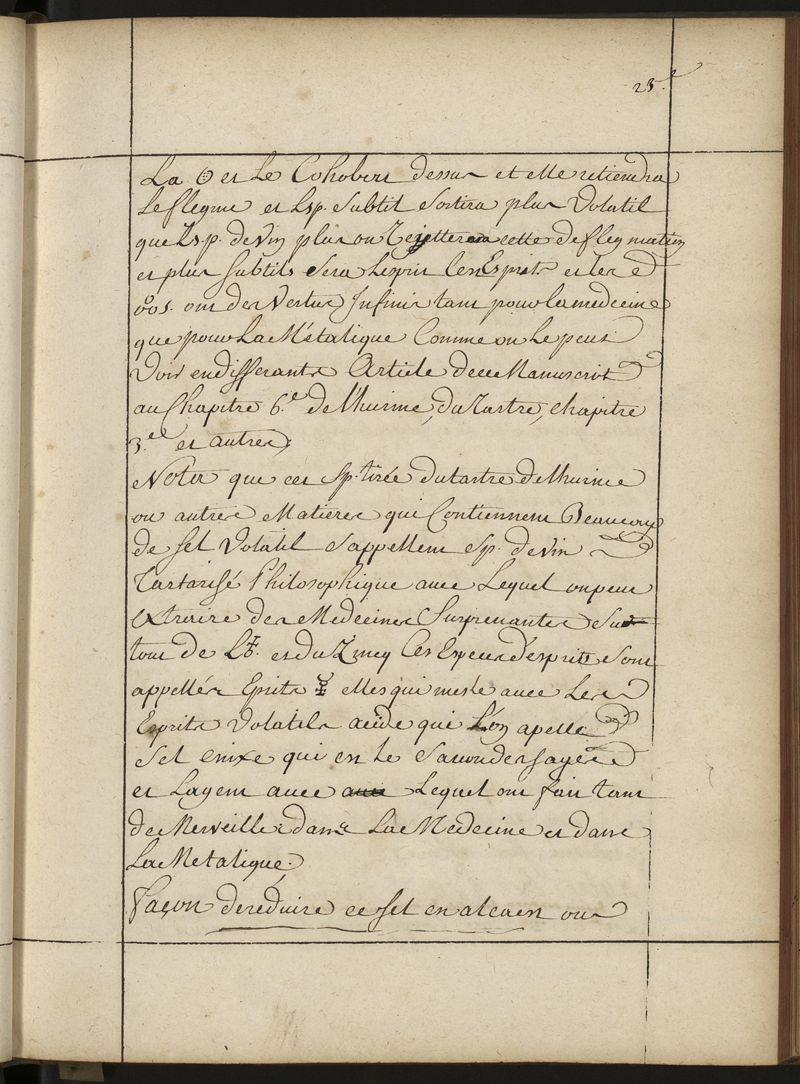 23.e
La et Le Cohober dessus et elle retiendra
Le flegme et L'sp. subtil sortira plus Volatil
que L'sp. de Vin plus on Rejettera cette deflegmation
et plus subtils sera L'esprit Ces Esprits et les
ont des Vertus Infinis tant pour la medecine
que pour La Métalique Comme on Le peut
Voir en differants Article de ce Manuscrit
au Chapitre 6.e de l'hurine, du Tartre, chapitre
3.e et autres;
Noter que ces Sp. tirée du tartre de l'hurine
ou autres Matieres qui Contiennent Beaucoup
de sel Volatil s'appellent Sp. de Vin
Tartarisé Philosophique avec Lequel on peut
Extraire des Medecines Surprenantes Sur
tout de L' et du Zincq Ces Especes d'esprits sont
appellés Eprits elles qui mesle avec Les
Esprits Volatils acide qui L'on apelle
Sel enixe qui en le Savon des sages
et L'agent avec Lequel ont fait tant
de Merveille dans La Medecine et dans
La Metalique.
Façon de reduire ce sel en alcaest ou